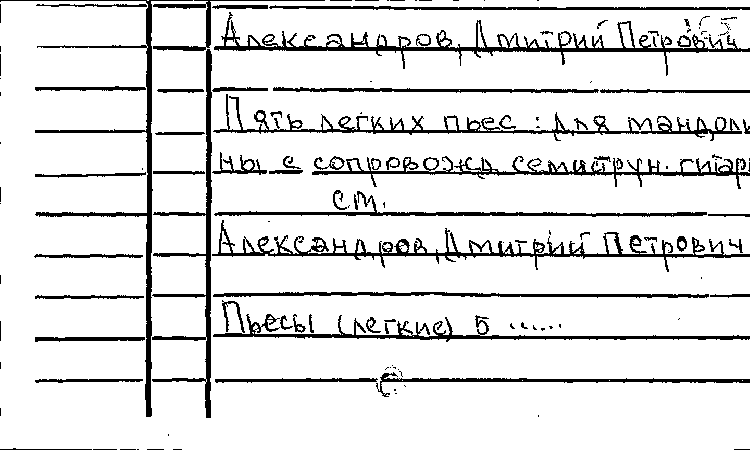 Александров, Дмитрий Петрович
Пять легких пьес : для мандоли
ны с сопровожд. семиструн. гитары
см.
Александров, Дмитрий Петрович
Пьесы (легкие) 5 ......